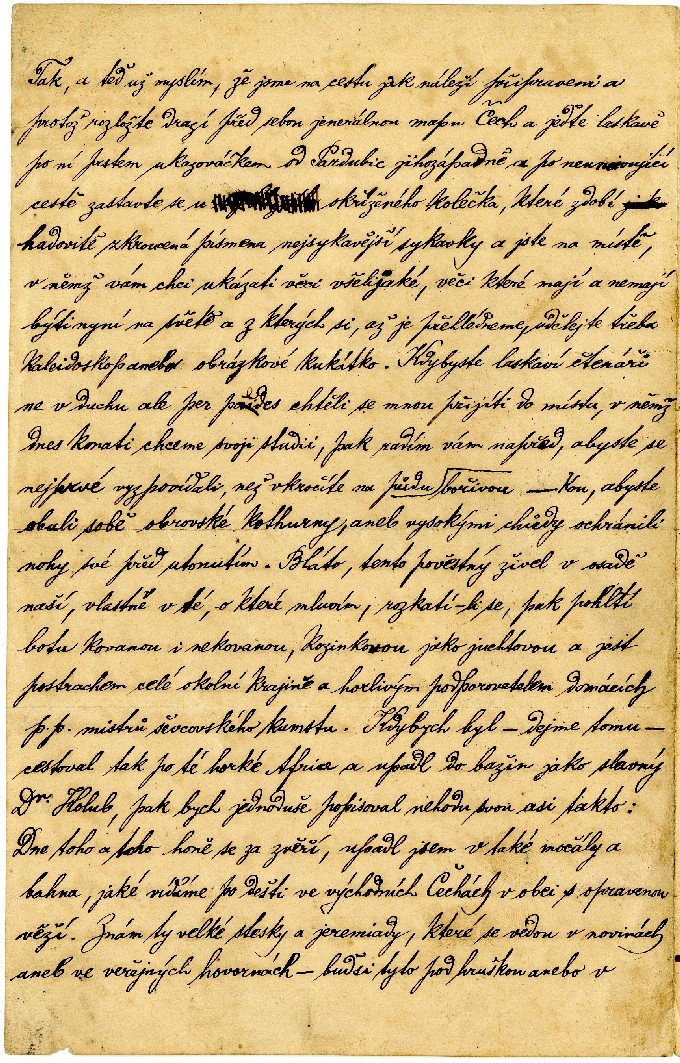 Tak, a teď už myslím, že jsme na cestu jak náleží připraveni a
protož rozložte drazí před sebou jenerálnou mapu Čech a jeďte laskavě
po ní prstem ukazováčkem od Pardubic jihozápadně a po neunavující
cestě zastavte se u okříženého kolečka, které zdobí
hadovitě zkroucená písmena nejsykavější sykavky a jste na místě,
v němž vám chci ukázati věci všelijaké, věci které mají a nemají
býti nyní na světě a z kterých si, až je přehlédneme, udělejte třeba
kaleidoskop anebo obrázkové kukátko. Kdybyste laskaví čtenáři
ne v duchu ale per pedes chtěli se mnou přijíti do místa, v němž
dnes konati chceme svoji studii, pak radím vám napřed, abyste se
nejprvé vyzpovídali, než vkročíte na půdu bořivou — kou, abyste
obuli sobě obrovské kothurny, aneb vysokými chůdy ochránili
nohy své před utonutím. Bláto, tento pověstný živel v osadě
naší, vlastně v té, o které mluvím, rozkatí-li se, pak pohltí
botu kovanou i nekovanou, kozinkovou jako juchtovou a jest
postrachem celé okolní krajině a horlivým podporovatelem domácích
p. p. mistrů ševcovského kumstu. Kdybych byl — dejme tomu —
cestoval tak po té horké Africe a upadl do bažin jako slavný
Dr. Holub, pak bych jednoduše popisoval nehodu svou asi takto:
Dne toho a toho honě se za zvěří, upadl jsem v také močály a
bahna, jaké vidíme po dešti ve východních Čechách v obci s opravenou
věží. Znám ty velké stesky a jeremiady, které se vedou v novinách
aneb ve veřejných hovornách — buďsi tyto pod hruškou anebo v